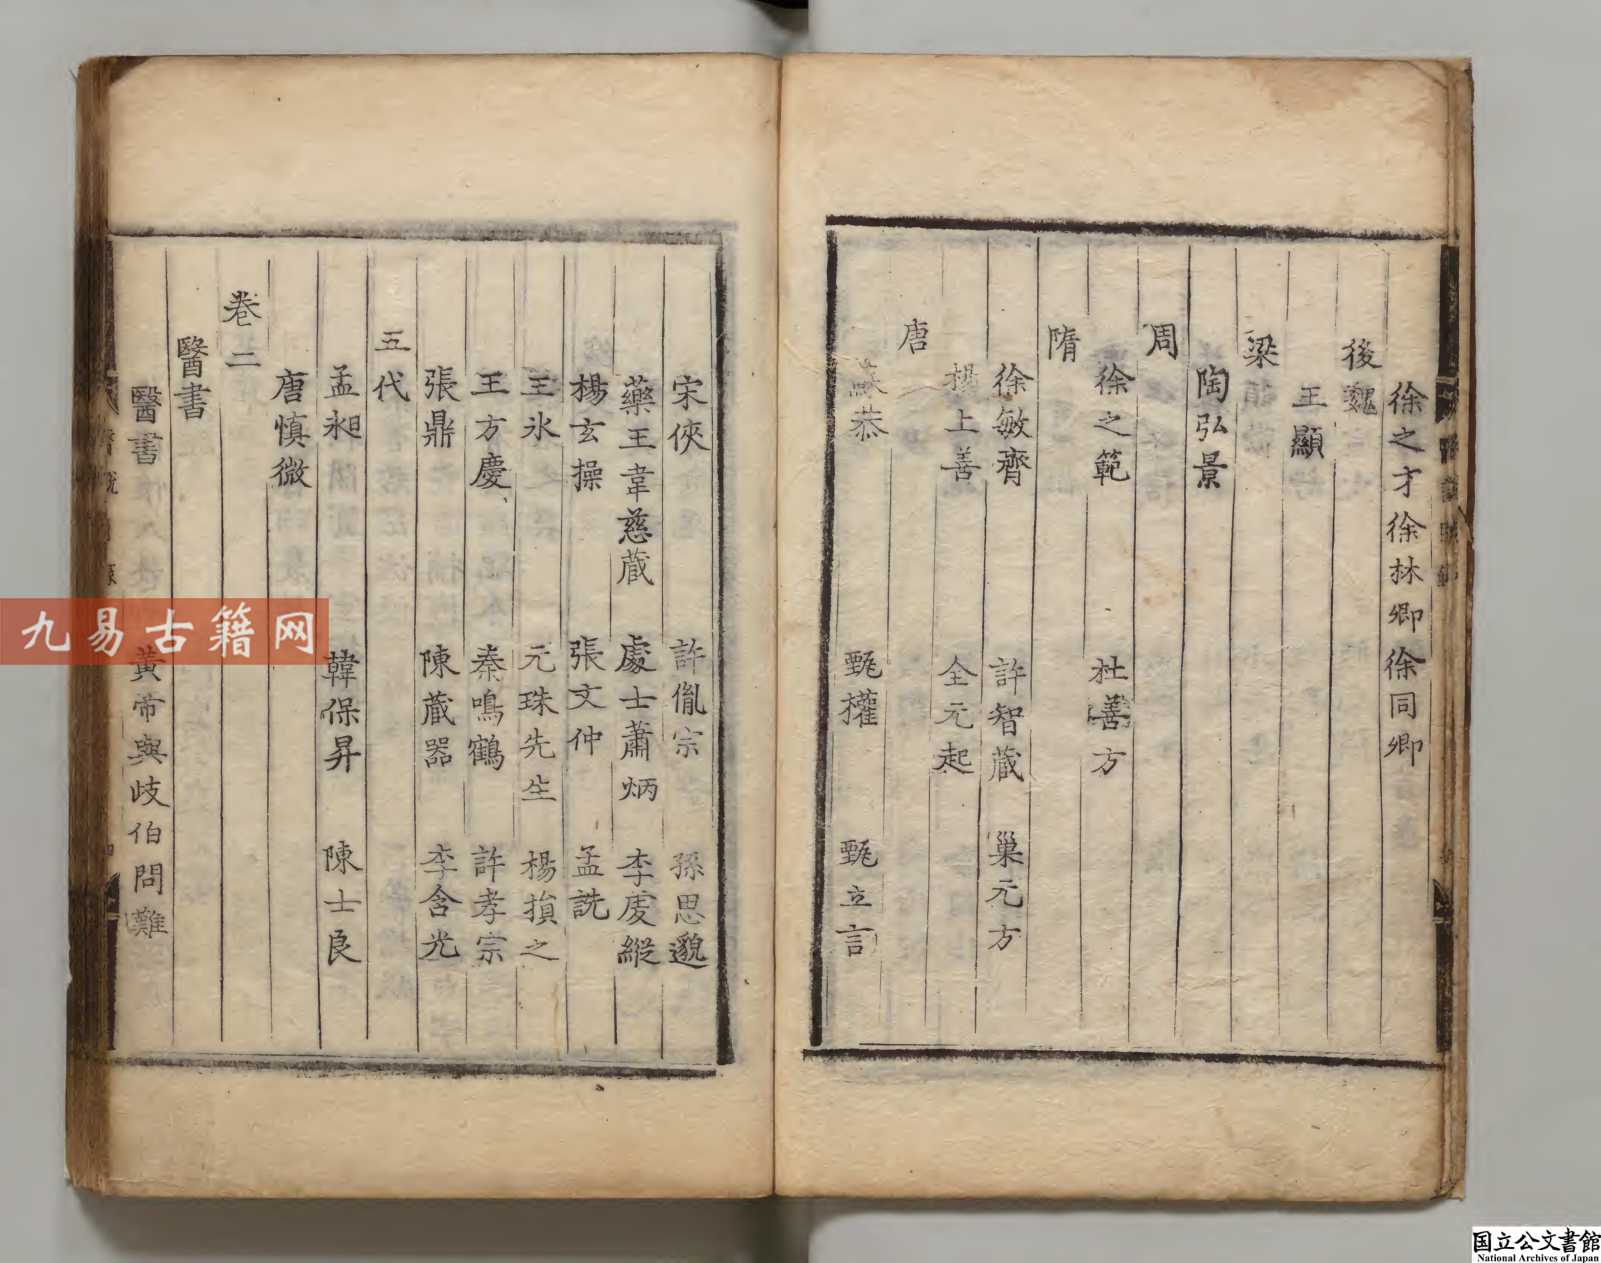 徐之才徐林卿徐同卿
後魏
王顯
梁
陶弘景
周
徐之範 杜善方
隋
徐敏齊 許智藏 巢元方
楊上善 全元起
唐
蘇恭 甄權 甄立言
宋俠 許胤宗 孫思邈
藥王韋慈藏 處士蕭炳 李虔縱
楊玄操 張文仲 孟詵
王冰 元珠先生 楊損之
王方慶 秦鳴鶴 許孝宗
張鼎 陳藏器 李含光
五代
孟昶 韓保昇 陳士良
唐慎微
卷二
醫書
醫書 黃帝與歧伯問難
九易古籍网
国立公文書館
National Archives of Japan